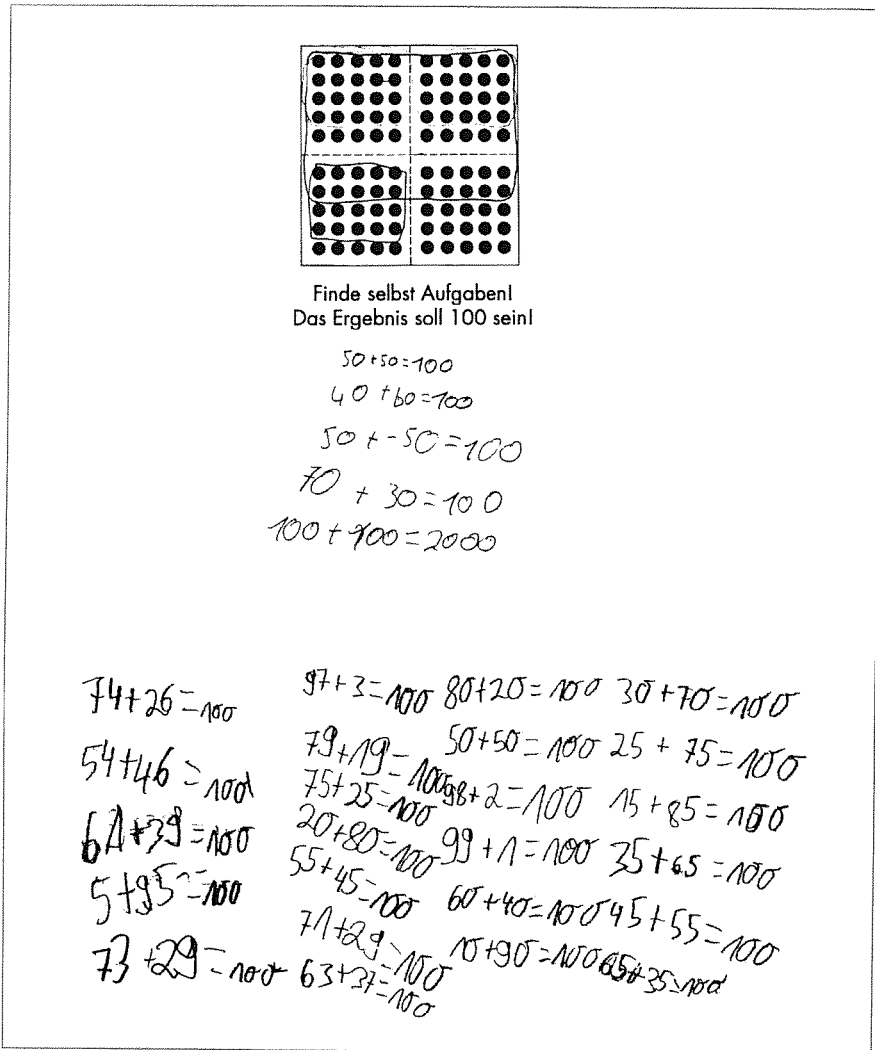 Finde selbst Aufgaben!
Das Ergebnis soll 100 sein!
50+50=100
40+60=100
50+-50=100
70+30=100
100+100=2000
74+26=100
54+46=100
61+39=100
5+95=100
73+29=100
97+3=100
79+19=100
75+25=100
20+80=100
55+45=100
71+29=100
63+37=100
80+20=100
50+50=100
98+2=100
99+1=100
60+40=100
10+90=100
30+70=100
25+75=100
15+85=100
35+65=100
45+55=100
65+35=100